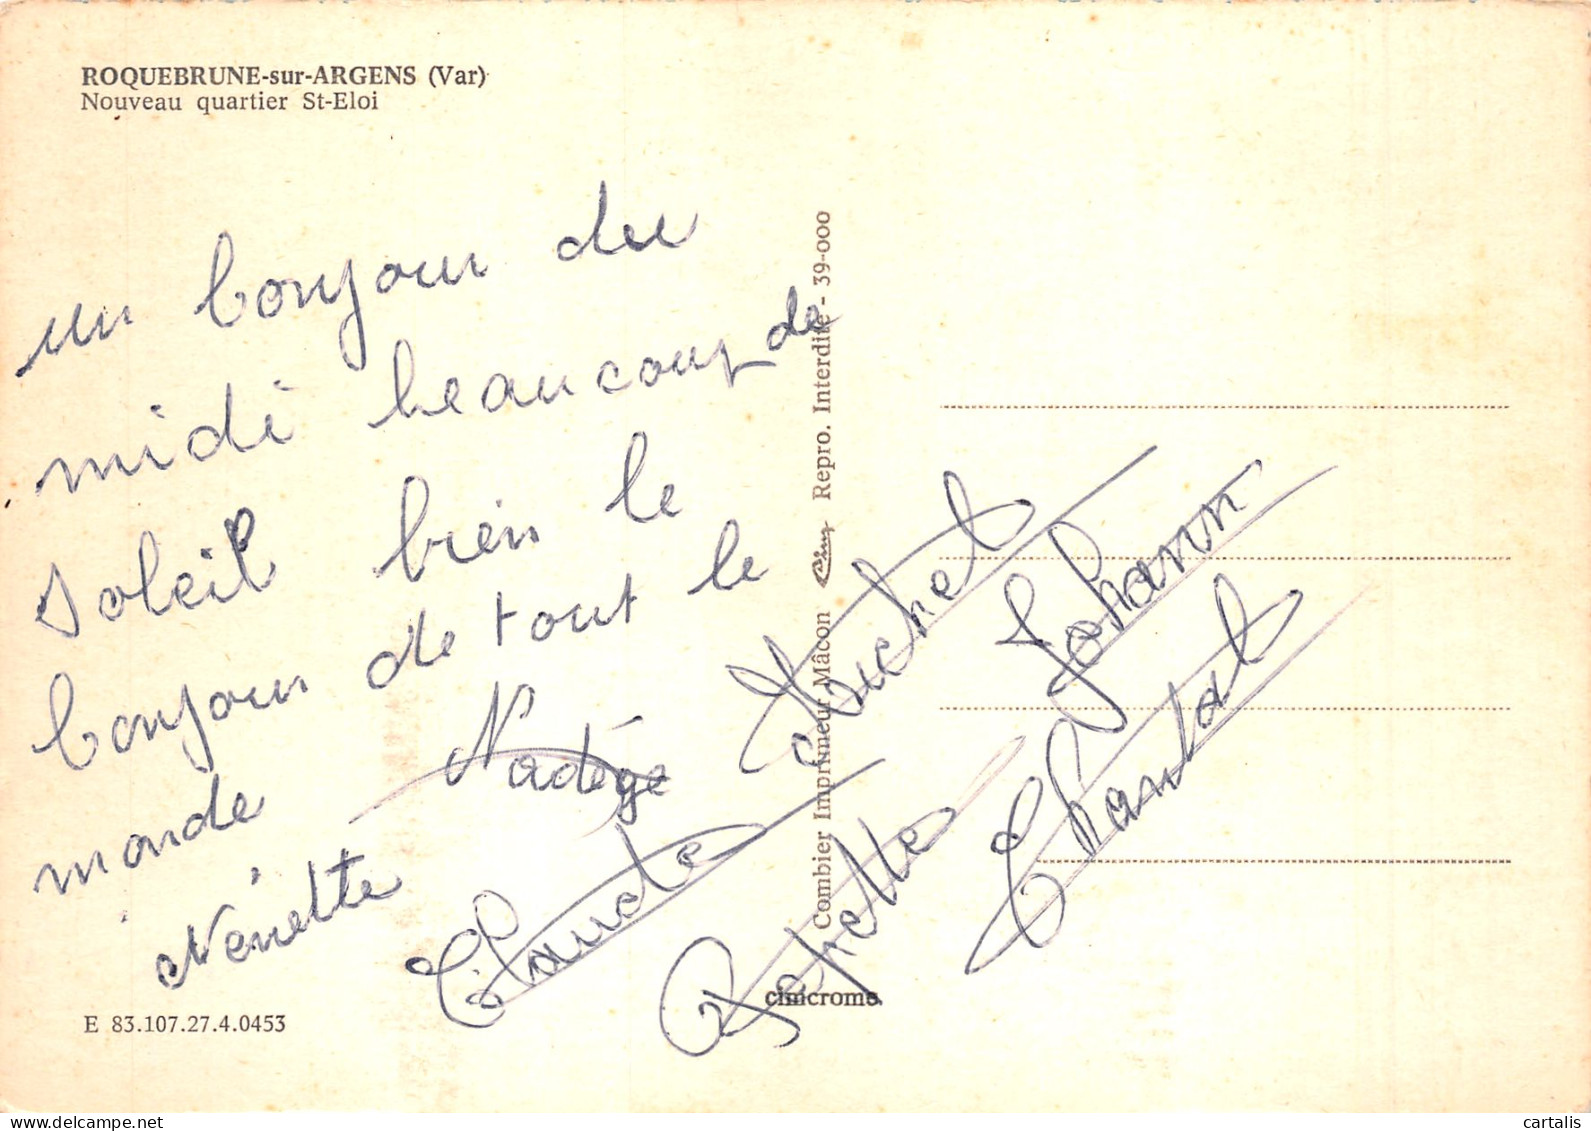 ROQUEBRUNE-sur-ARGENS (Var)
Nouveau quartier St-Eloi
un bonjour du
midi beaucoup de
soleil bien le
bonjour de tout le
monde
Nadège
Nénette
Claude
Michel
Johann
Chantal
E 83.107.27.4.0453
Combier Imprimeur Mâcon Cim Repro. Interdite - 39-000
cimcrome
cartalis